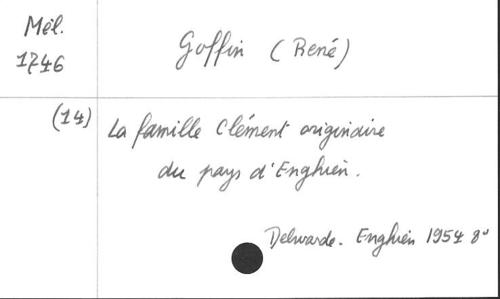 Mél.
1746
Goffin (René)
(14)
La famille Clément originaire
du pays d'Enghien.
Delwarde. Enghien 1954 8°